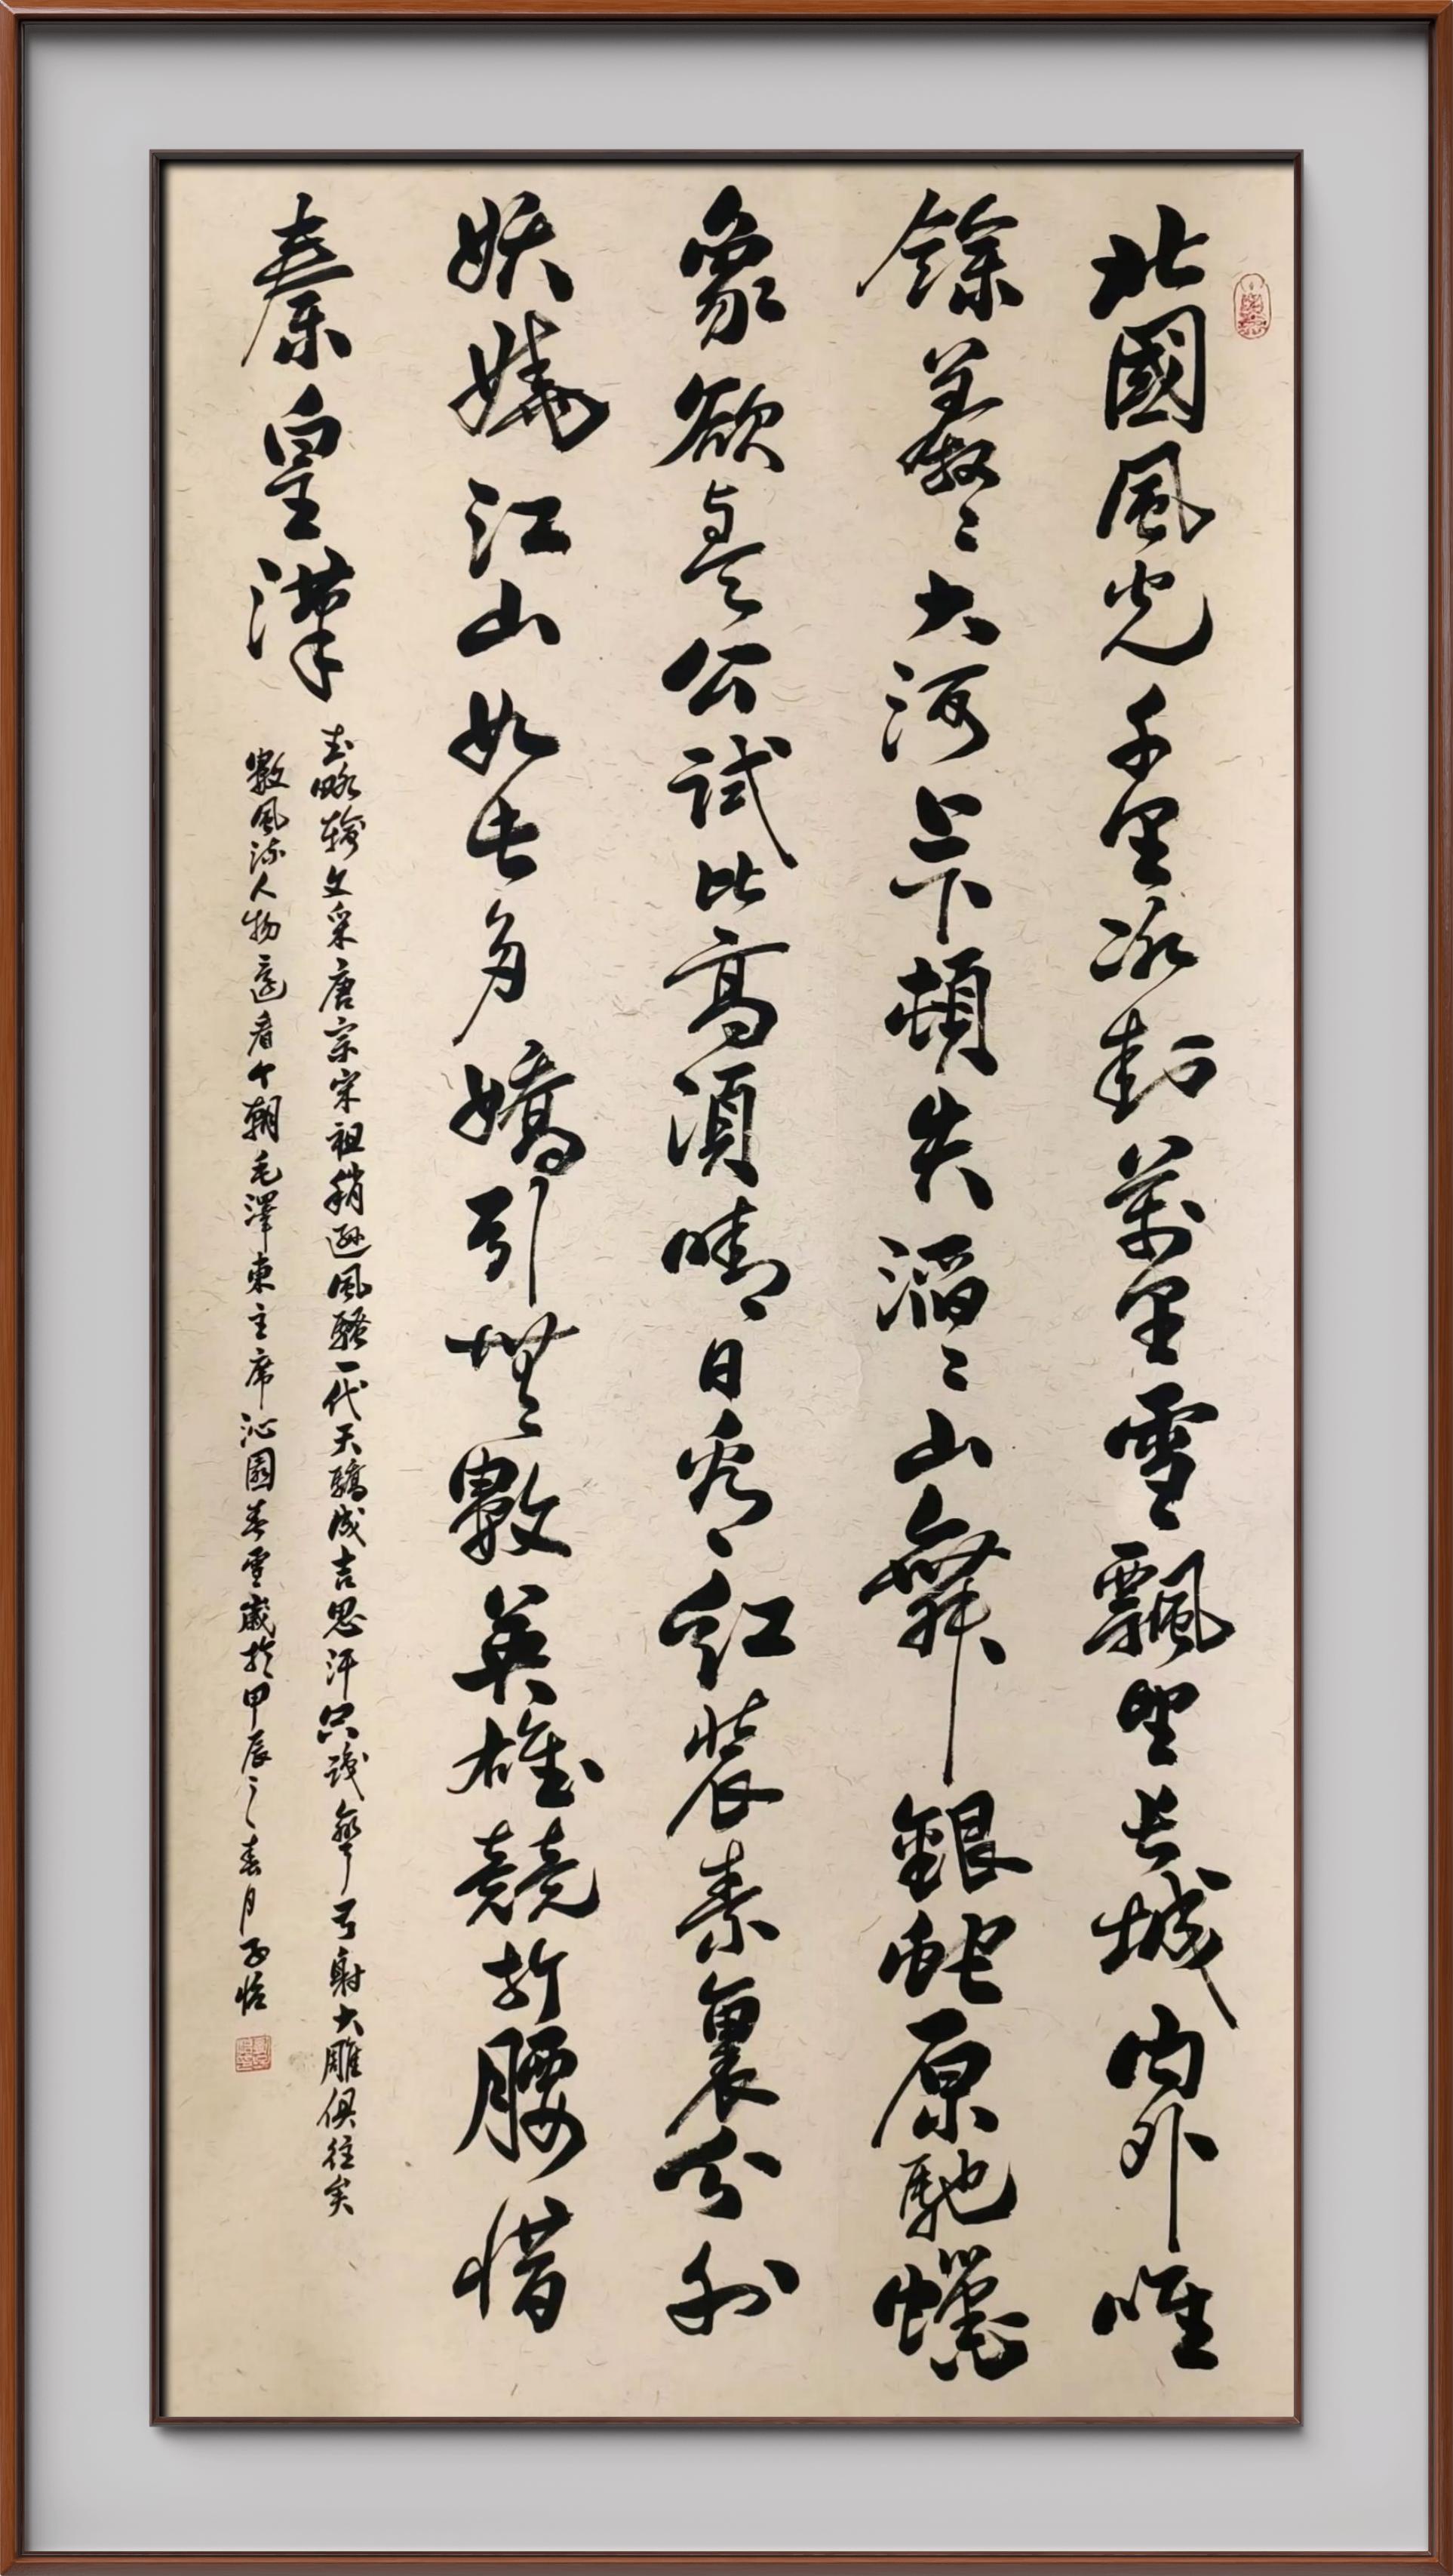 北國風光千里冰封萬里雪飄望長城內外唯
餘莽〻大河上下頓失滔〻山舞銀蛇原馳蠟
象欲與天公試比高須晴日看紅裝素裹分外
妖嬈江山如此多嬌引無數英雄競折腰惜
秦皇漢
武略輸文采唐宗宋祖稍遜風騷一代天驕成吉思汗只識彎弓射大雕俱往矣
數風流人物還看今朝毛澤東主席沁園春雪歲於甲辰之春月子怡